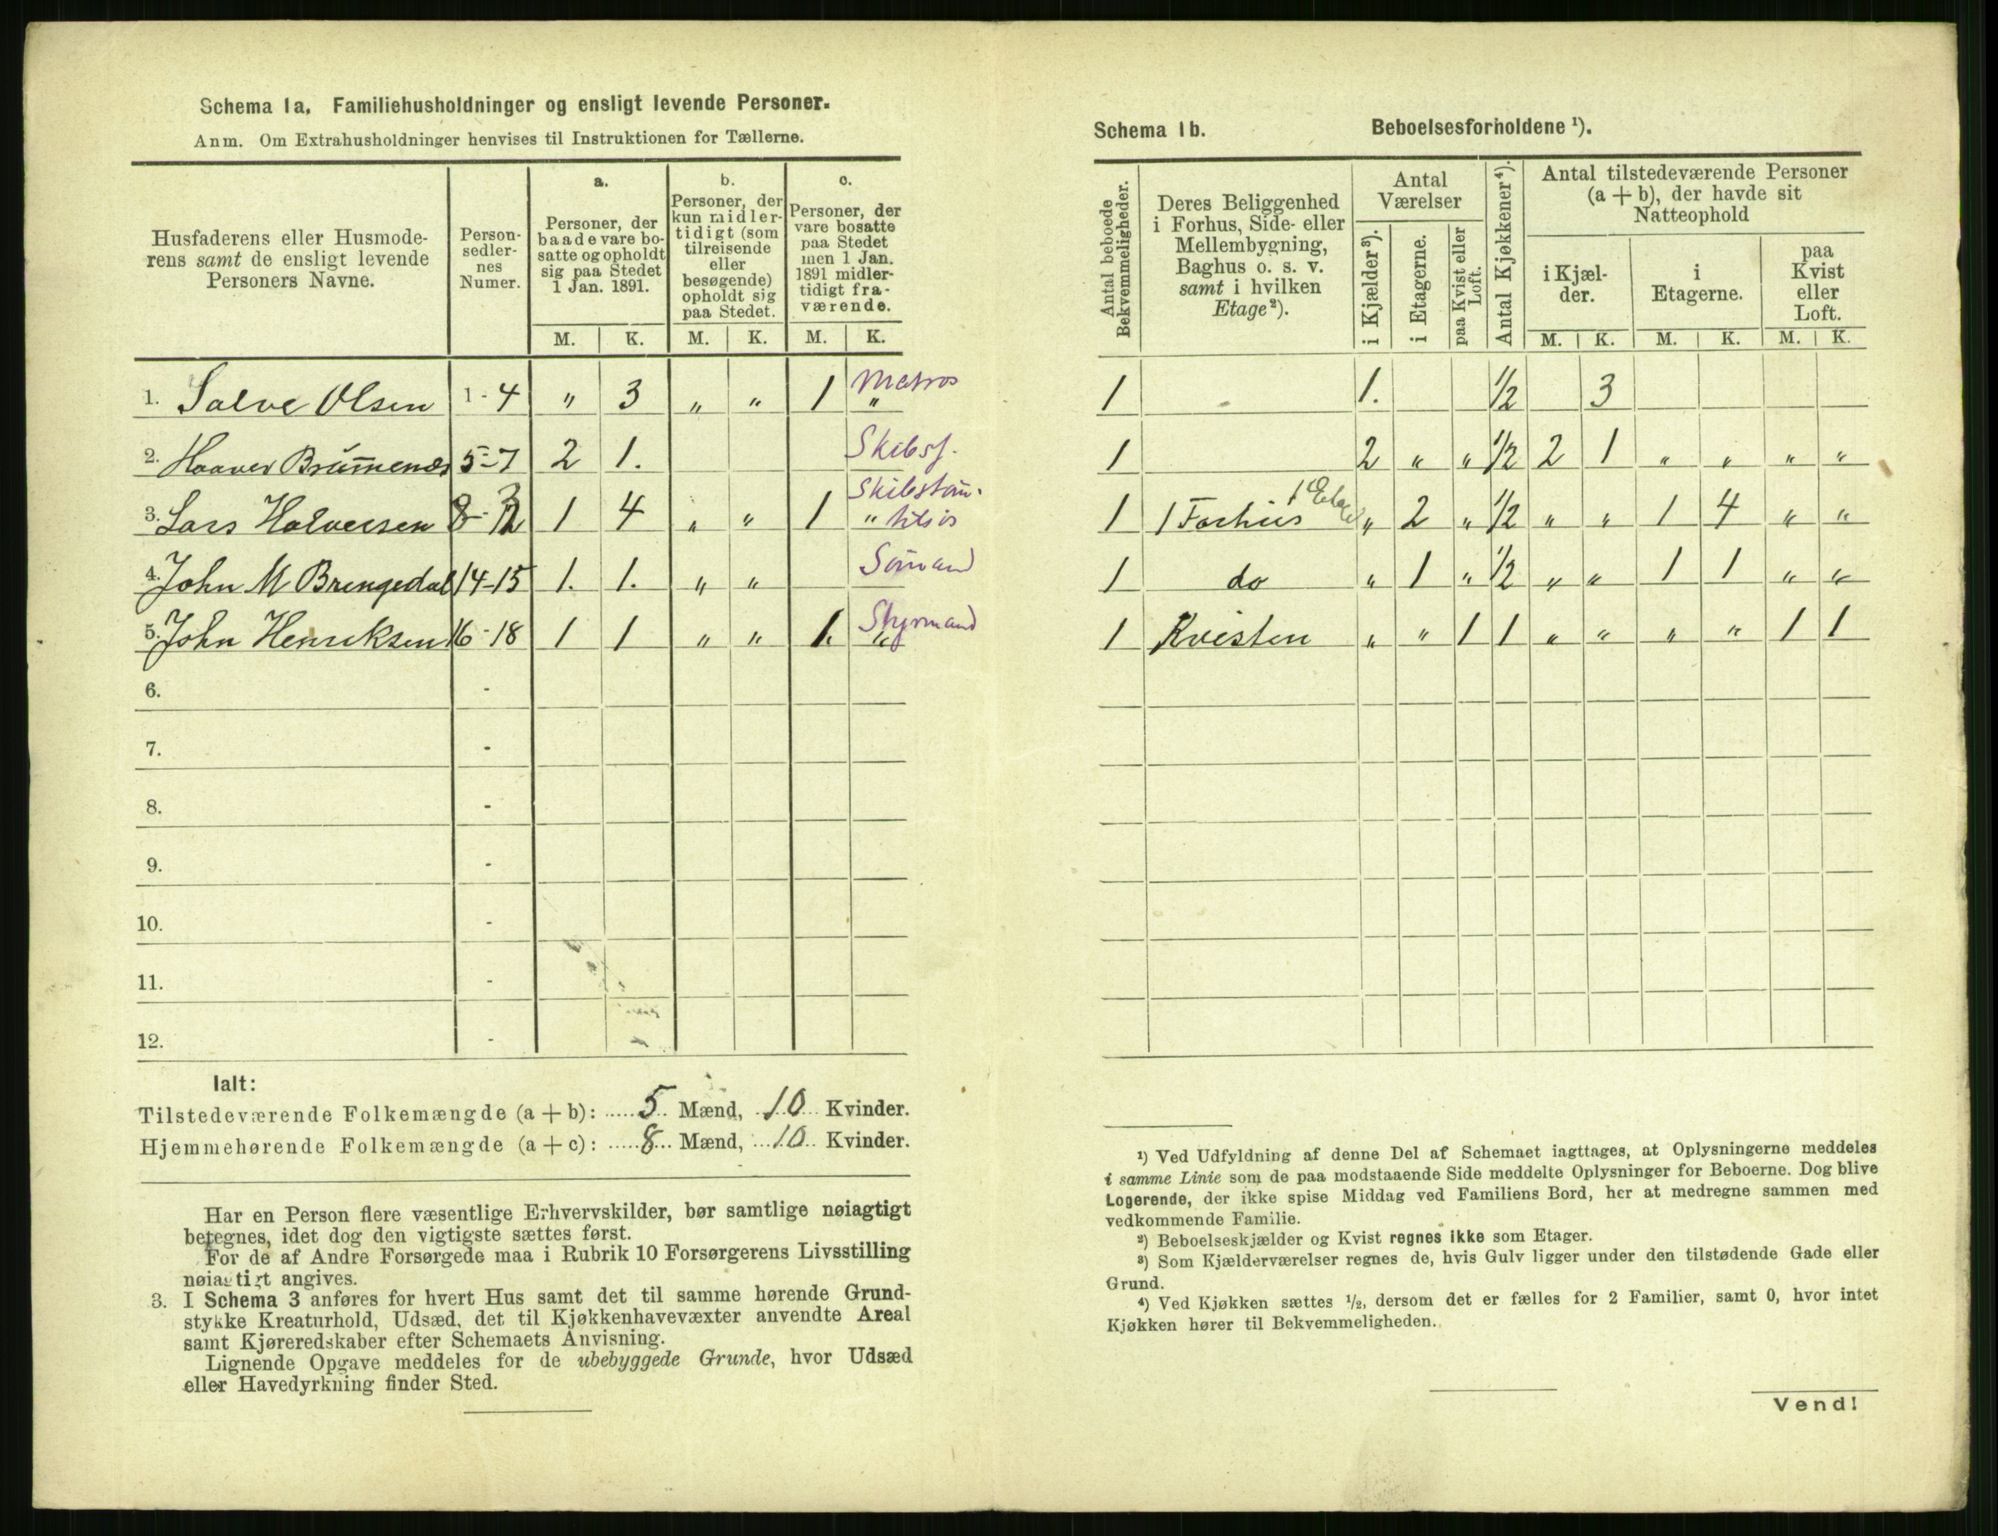 Schema 1a. Familiehusholdninger og ensligt levende Personer.
Anm. Om Extrahusholdninger henvises til Instruktionen for Tællerne.
Husfaderens eller Husmoderens samt de ensligt levende Personers Navne.
Person-sedler-nes Numer.
a. Personer, der baade vare bosatte og opholdt sig paa Stedet 1 Jan. 1891.
b. Personer, der kun midlertidigt (som tilreisende eller besøgende) opholdt sig paa Stedet.
c. Personer, der vare bosatte paa Stedet men 1 Jan. 1891 midlertidigt fraværende.
M. K. M. K. M. K.
1. Salve Olsen 1-4 " 3 " " 1 Matros "
2. Haaver 5-7 2 1. Skibsf.
3. Lars Halversen 8- 1 4 " " 1 Skibstøm. "
4. John M Brengedal 14-15 1. 1. " " Sømand
5. John Henriksen 16-18 1 1 " " 1. Styrmand "
6. -
7. -
8. -
9. -
10. -
11. -
12. -
Ialt:
Tilstedeværende Folkemængde (a + b): 5 Mænd, 10 Kvinder.
Hjemmehørende Folkemængde (a + c): 8 Mænd, 10 Kvinder.
Har en Person flere væsentlige Erhvervskilder, bør samtlige nøiagtigt
betegnes, idet dog den vigtigste sættes først.
For de af Andre Forsørgede maa i Rubrik 10 Forsørgerens Livsstilling
nøiagtigt angives.
3. I Schema 3 anføres for hvert Hus samt det til samme hørende Grund-
stykke Kreaturhold, Udsæd, det til Kjøkkenhavevæxter anvendte Areal
samt Kjøreredskaber efter Schemaets Anvisning.
Lignende Opgave meddeles for de ubebyggede Grunde, hvor Udsæd
eller Havedyrkning finder Sted.
Schema 1b. Beboelsesforholdene ¹).
Antal beboede Bekvemmeligheder.
Deres Beliggenhed i Forhus, Side- eller Mellembygning, Baghus o. s. v. samt i hvilken Etage²).
Antal Værelser
i Kjælder³). i Etagerne. paa Kvist eller Loft.
Antal Kjøkkener⁴).
Antal tilstedeværende Personer (a + b), der havde sit Natteophold
i Kjælder. i Etagerne. paa Kvist eller Loft.
M. K. M. K. M. K.
1 1. ½ 3
1 2 " " ½ 2 1 " " " "
1 1 Forhus " 2 " ½ " " 1 4 " "
1 do " 1 " ½ " " 1 1 " "
1 Kvisten " " 1 1 " " " " 1 1
¹) Ved Udfyldning af denne Del af Schemaet iagttages, at Oplysningerne meddeles
i samme Linie som de paa modstaaende Side meddelte Oplysninger for Beboerne. Dog blive
Logerende, der ikke spise Middag ved Familiens Bord, her at medregne sammen med
vedkommende Familie.
²) Beboelseskjælder og Kvist regnes ikke som Etager.
³) Som Kjælderværelser regnes de, hvis Gulv ligger under den tilstødende Gade eller
Grund.
⁴) Ved Kjøkken sættes ½, dersom det er fælles for 2 Familier, samt 0, hvor intet
Kjøkken hører til Bekvemmeligheden.
Vend!